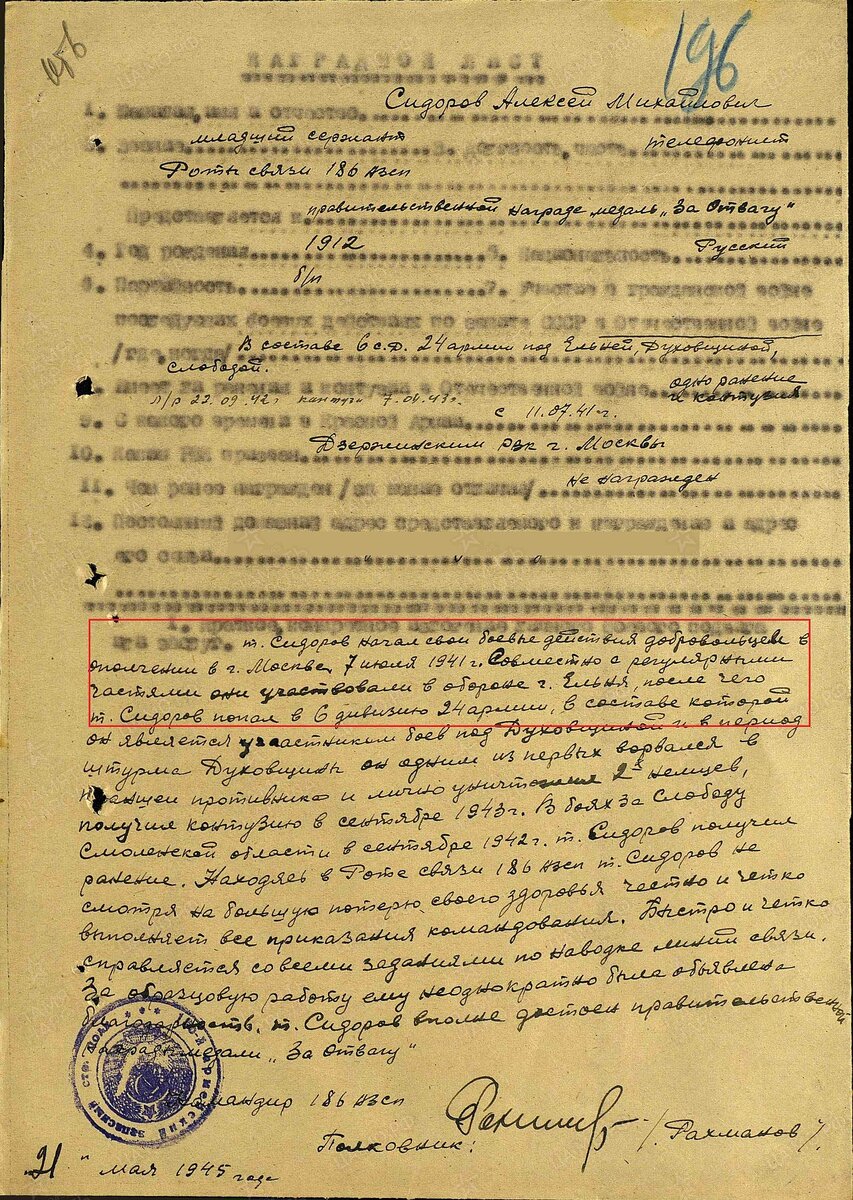 156
196
НАГРАДНОЙ ЛИСТ
1. Фамилия, имя и отчество Сидоров Алексей Михайлович
2. Звание младший сержант 3. Должность, часть телефонист
Роты связи 186 АЗСП
Представляется к правительственной награде медаль „За Отвагу"
4. Год рождения 1912 5. Национальность Русский
6. Партийность б/п 7. Участие в гражданской войне
последующих боевых действиях по защите СССР и Отечественной войне
/где, когда/ В составе 6 с.д. 24 армии под Ельней, Духовщиной,
слободой.
8. Имеет ли ранения и контузии в Отечественной войне одно ранение
и контузия
л/р 22.09.42г контузия 7.04.43г.
9. С какого времени в Красной Армии с 11.07.41г.
10. Каким РВК призван Дзержинским РВК г. Москвы
11. Чем ранее награжден /за какие отличия/ не награжден
12. Постоянный домашний адрес представляемого к награждению и адрес
его семьи
1. Краткое, конкретное изложение личного боевого подвига
или заслуг. т. Сидоров начал свои боевые действия добровольцем в
ополчении в г. Москве, 7 июля 1941г. Совместно с регулярными
частями они участвовали в обороне г. Ельня, после чего
т. Сидоров попал в 6 дивизию 24 армии, в составе которой
он является участником боев под Духовщиной и в период
штурма Духовщины он одним из первых ворвался в
траншеи противника и лично уничтожил 2х немцев,
получил контузию в сентябре 1943г. В боях за Слободу
Смоленской области в сентябре 1942г. т. Сидоров получил
ранение. Находяеь в Роте связи 186 АЗСП т. Сидоров не
смотря на большую потерю своего здоровья честно и четко
выполняет все приказания командования. Быстро и четко
справляется со всеми заданиями по наводке линий связи.
За образцовую работу ему неоднократно была объявлена
благодарность. т. Сидоров вполне достоен правительственной
награды медали „За Отвагу"
Командир 186 АЗСП
Полковник: /Рахманов/.
"21" мая 1945 года
армейский запасный стр. полк